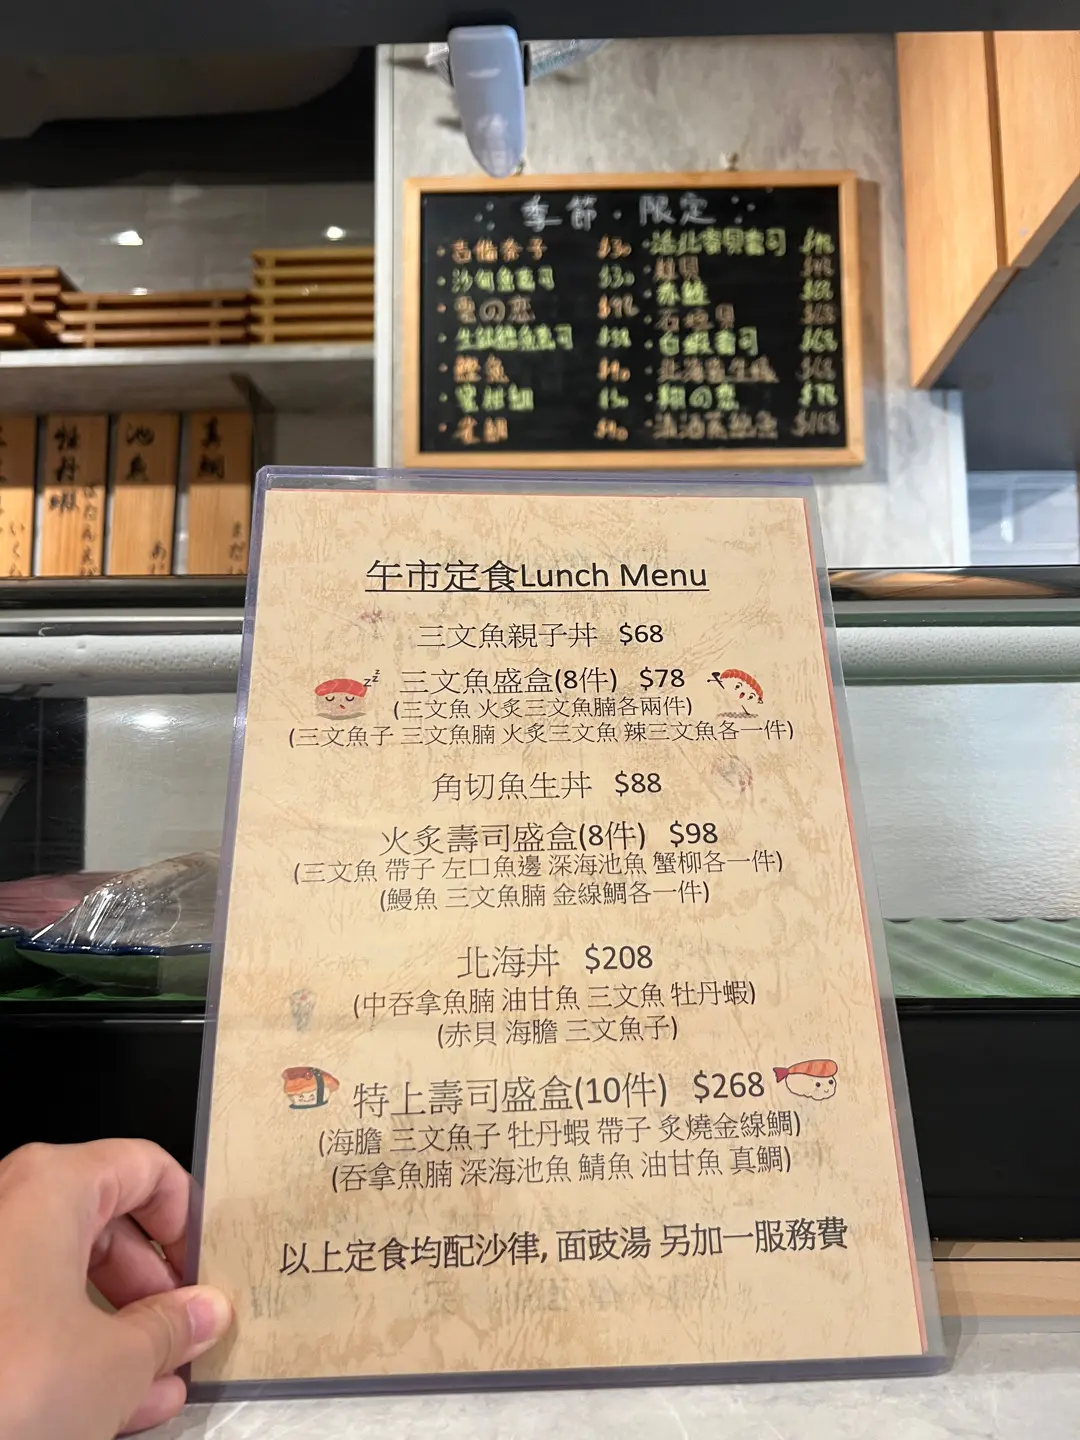 季節·限定
沙甸魚壽司 $30
栗の恋
鰹魚
白蝦壽司
牡丹蝦
ぼたんえび
池魚
あじ
真鯛
まだい
いくら
午市定食Lunch Menu
三文魚親子丼 $68
zzz
三文魚盛盒(8件) $78
(三文魚 火炙三文魚腩各兩件)
(三文魚子 三文魚腩 火炙三文魚 辣三文魚各一件)
角切魚生丼 $88
火炙壽司盛盒(8件) $98
(三文魚 帶子 左口魚邊 深海池魚 蟹柳各一件)
(鰻魚 三文魚腩 金線鯛各一件)
北海丼 $208
(中吞拿魚腩 油甘魚 三文魚 牡丹蝦)
(赤貝 海膽 三文魚子)
特上壽司盛盒(10件) $268
(海膽 三文魚子 牡丹蝦 帶子 炙燒金線鯛)
(吞拿魚腩 深海池魚 鯖魚 油甘魚 真鯛)
以上定食均配沙律, 面豉湯 另加一服務費